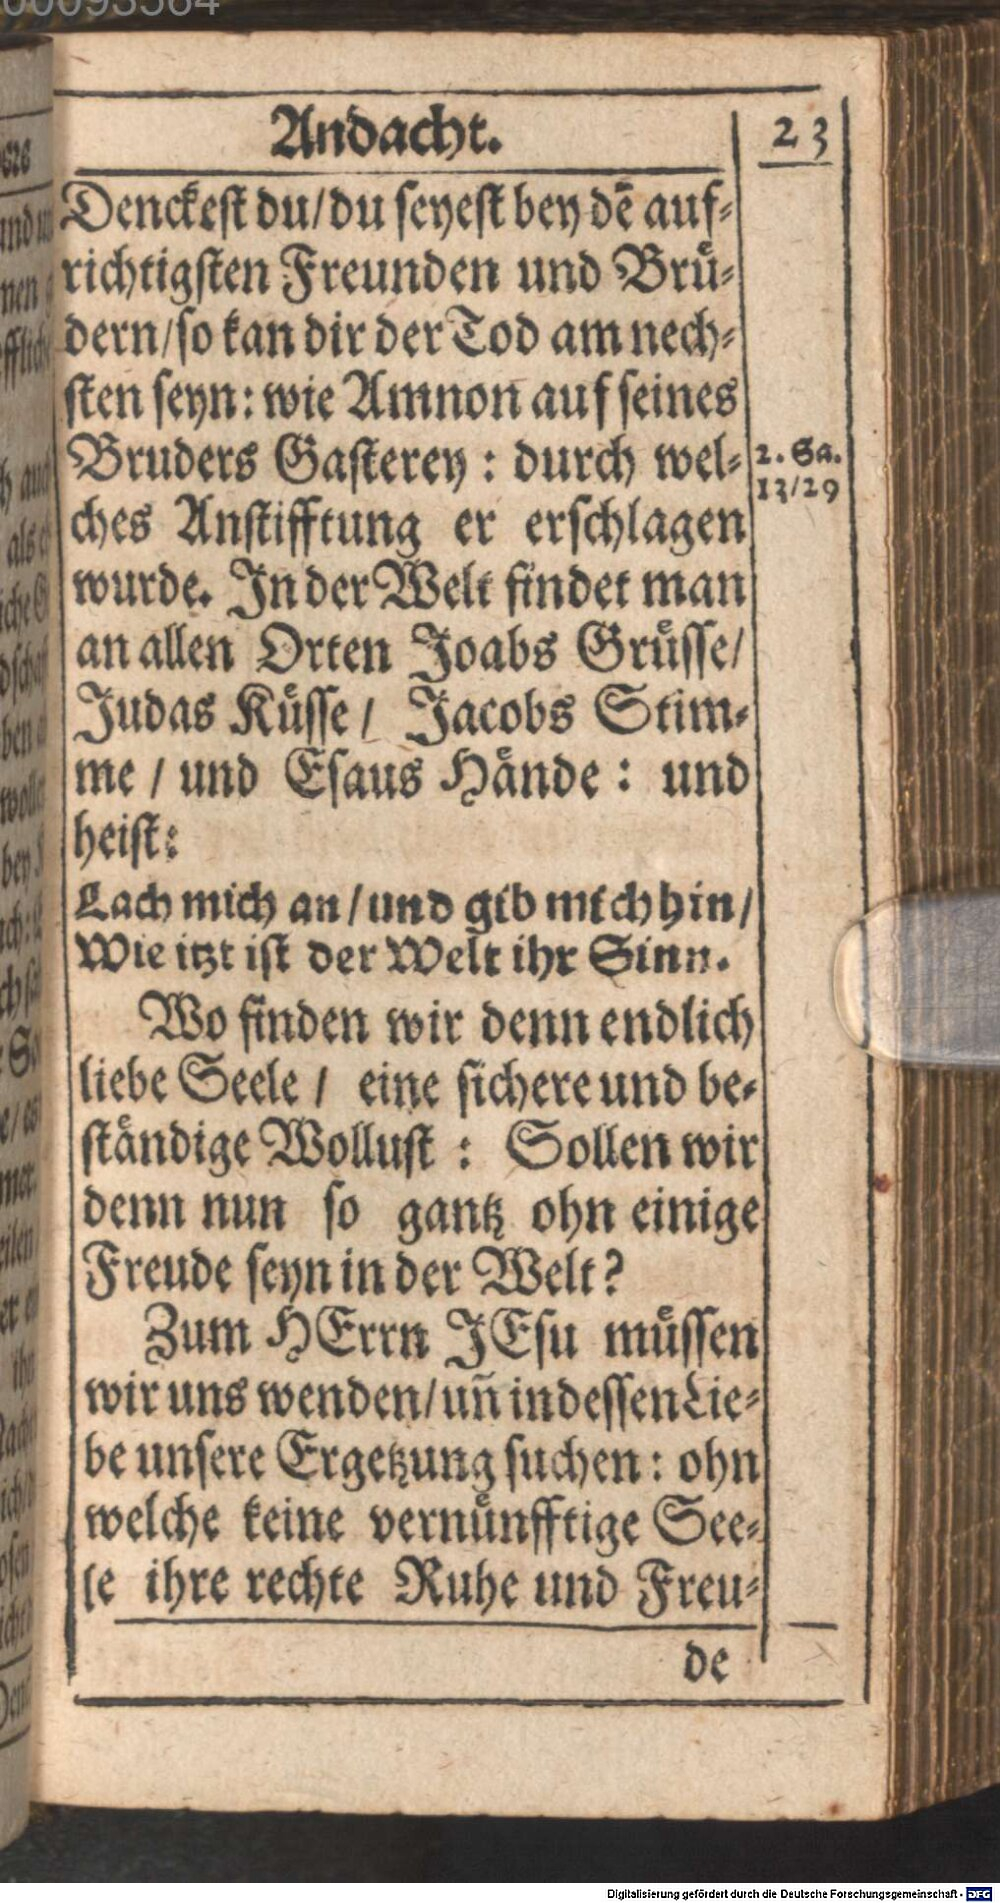 00093564
Andacht. 23
Denckest du/du seyest bey dẽ auf-
richtigsten Freunden und Brü-
dern/so kan dir der Tod am nech-
sten seyn: wie Amnon auf seines
Bruders Gasterey: durch wel-
2. Sa.
13/29
ches Anstifftung er erschlagen
wurde. In der Welt findet man
an allen Orten Joabs Grüsse/
Judas Küsse/ Jacobs Stim-
me / und Esaus Hände: und
heist:
Lach mich an/und gib mich hin/
Wie itzt ist der Welt ihr Sinn.
Wo finden wir denn endlich
liebe Seele / eine sichere und be-
ständige Wollust: Sollen wir
denn nun so gantz ohn einige
Freude seyn in der Welt?
Zum HErrn JEsu müssen
wir uns wenden/uñ in dessen Lie-
be unsere Ergetzung suchen: ohn
welche keine vernünfftige See-
le ihre rechte Ruhe und Freu-
de
Digitalisierung gefördert durch die Deutsche Forschungsgemeinschaft - DFG